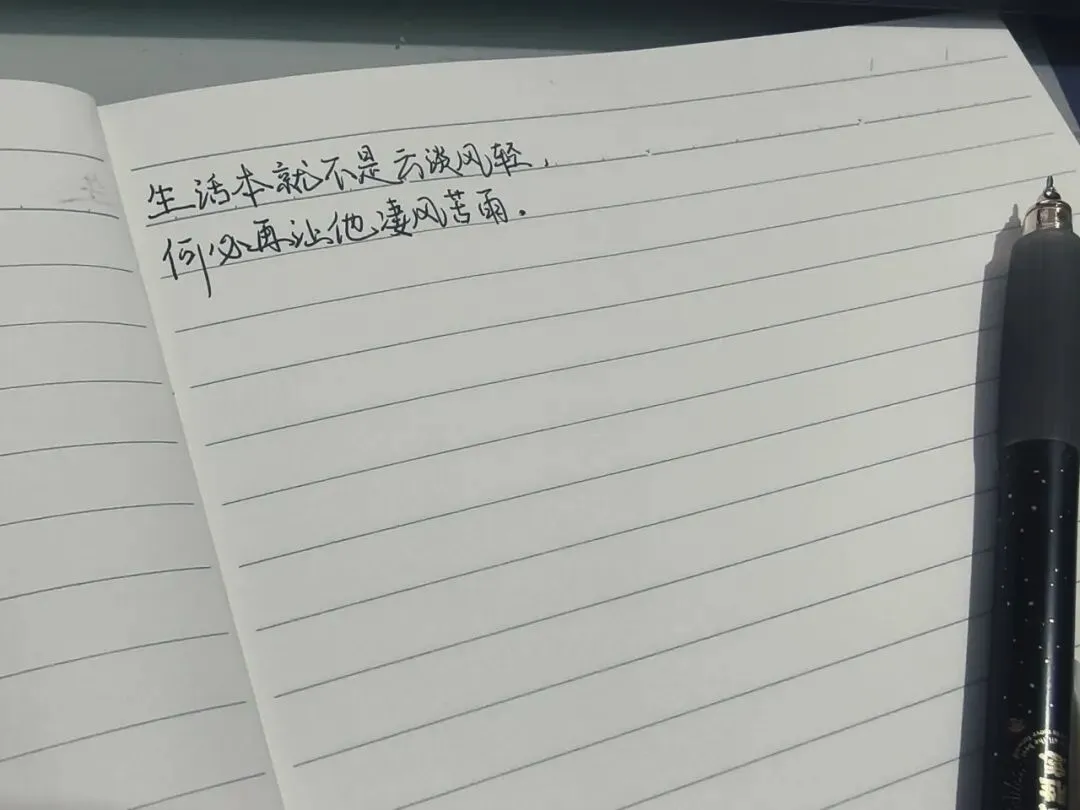 生活本就不是云淡风轻，
何必再让他凄风苦雨.